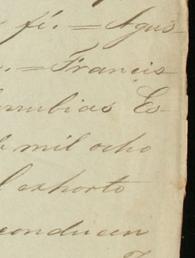 fé. = Agus
= Francis
rrubias Es
mil ocho
exhorto
conducen